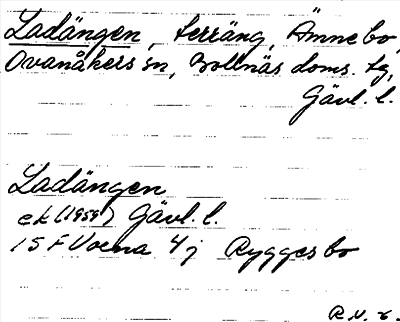 Ladängen, terräng, Ämnebo,
Ovanåkers sn, Bollnäs doms. tg,
Gävl. l.
Ladängen
ek (1959) Gävl. l.
15 F Voxna 4j Ryggesbo
R.N. r.